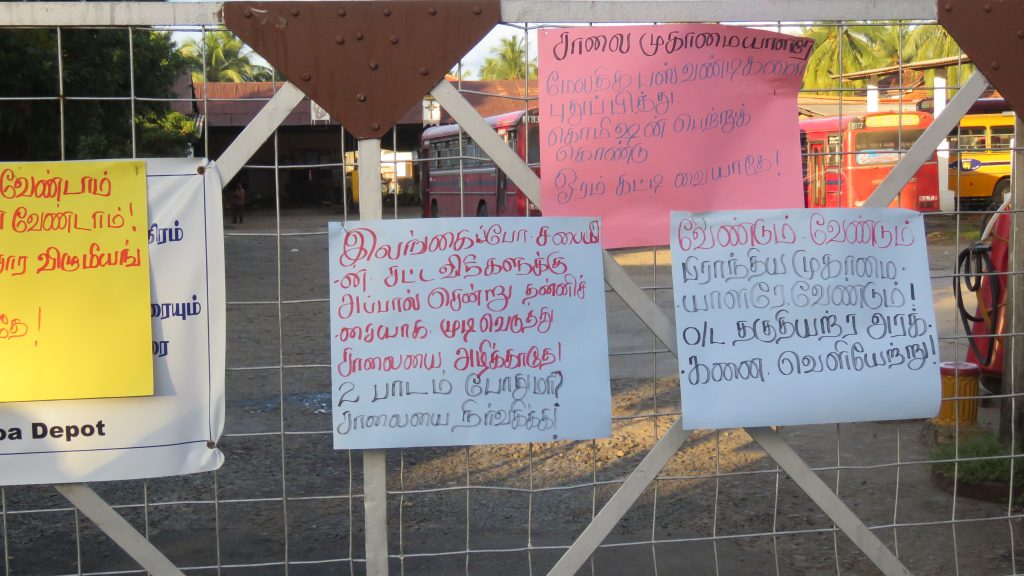 வேண்டாம்
வேண்டாம்!
தே!
திரம்
ரையும்
ரை
oa Depot
சாலை முகாமையாளரே
மேலதிக பஸ் வண்டிகளை
புதுப்பித்து
கொமிஷன் பெற்றுக்
கொண்டு
ஓரம் கட்டி வையாதே!
இலங்கைப்போ. சபையி
-ன் சட்ட விதிகளுக்கு
அப்பால் சென்று தன்னிச்
-சையாக முடிவெடுத்து
சாலையை அழிக்காதே!
2 பாடம் போதுமா?
சாலையை நிர்வகிக்க!
வேண்டும் வேண்டும்
பிராந்திய முகாமை-
-யாளரே வேண்டும்!
o/L தகுதியற்ற அரக்-
-கனை வெளியேற்று!